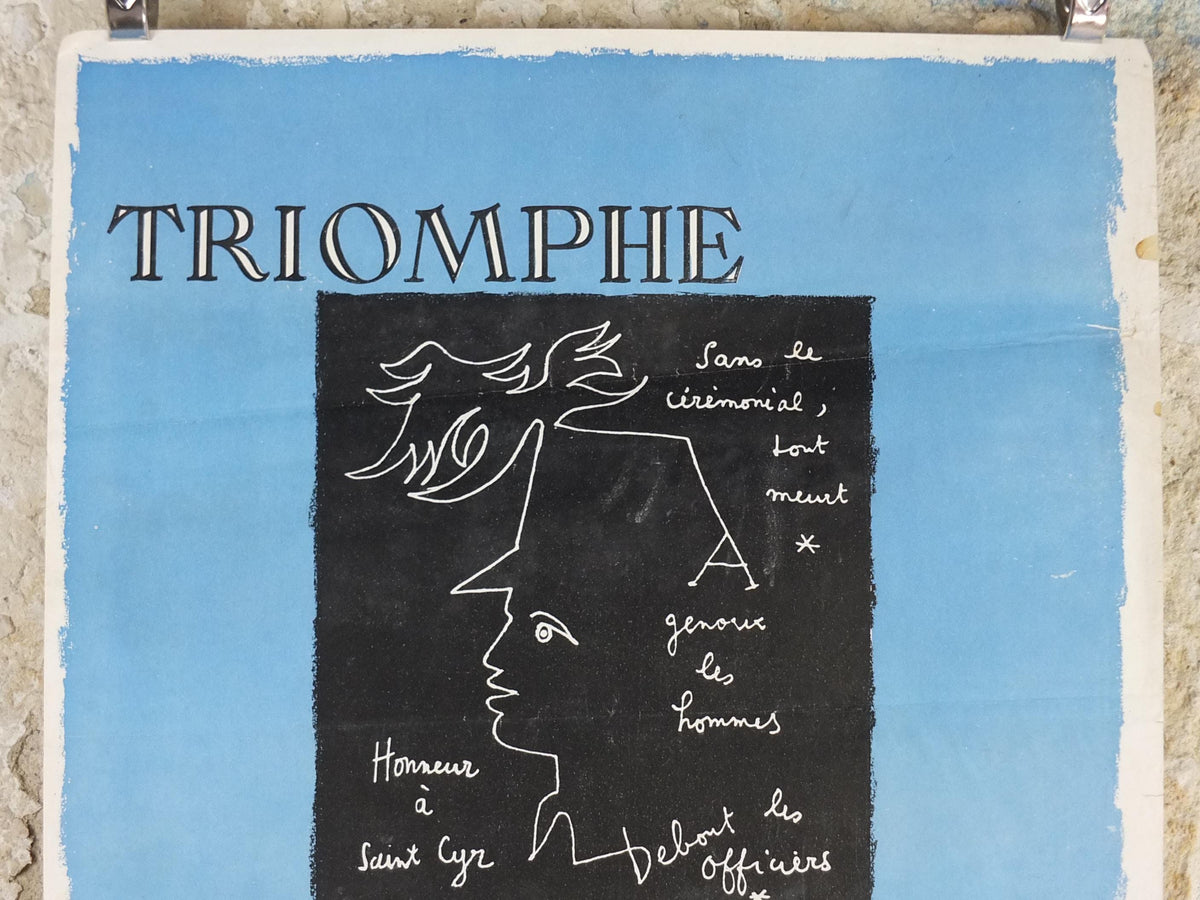 TRIOMPHE
Sans le
cérémonial,
tout
meurt
*
A
genoux
les
hommes
Honneur
à
Saint Cyr
Debout les
officiers
*